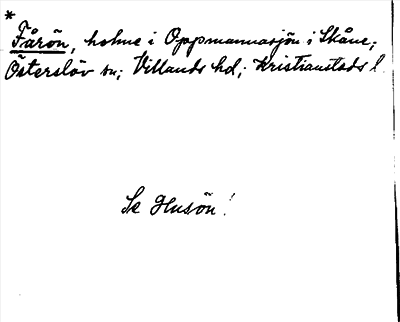 *
Fårön, holme i Oppmannasjön i Skåne;
Österslöv sn; Villands hd; Kristianstads l.
Se Husön!